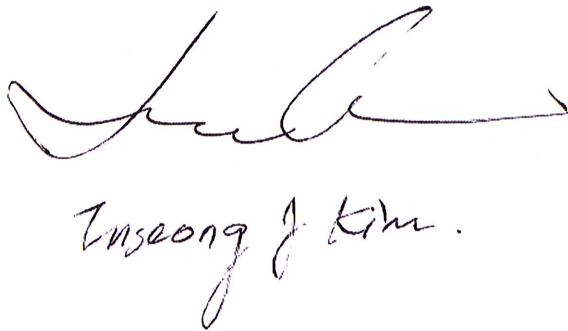 Inseong J. Kim.